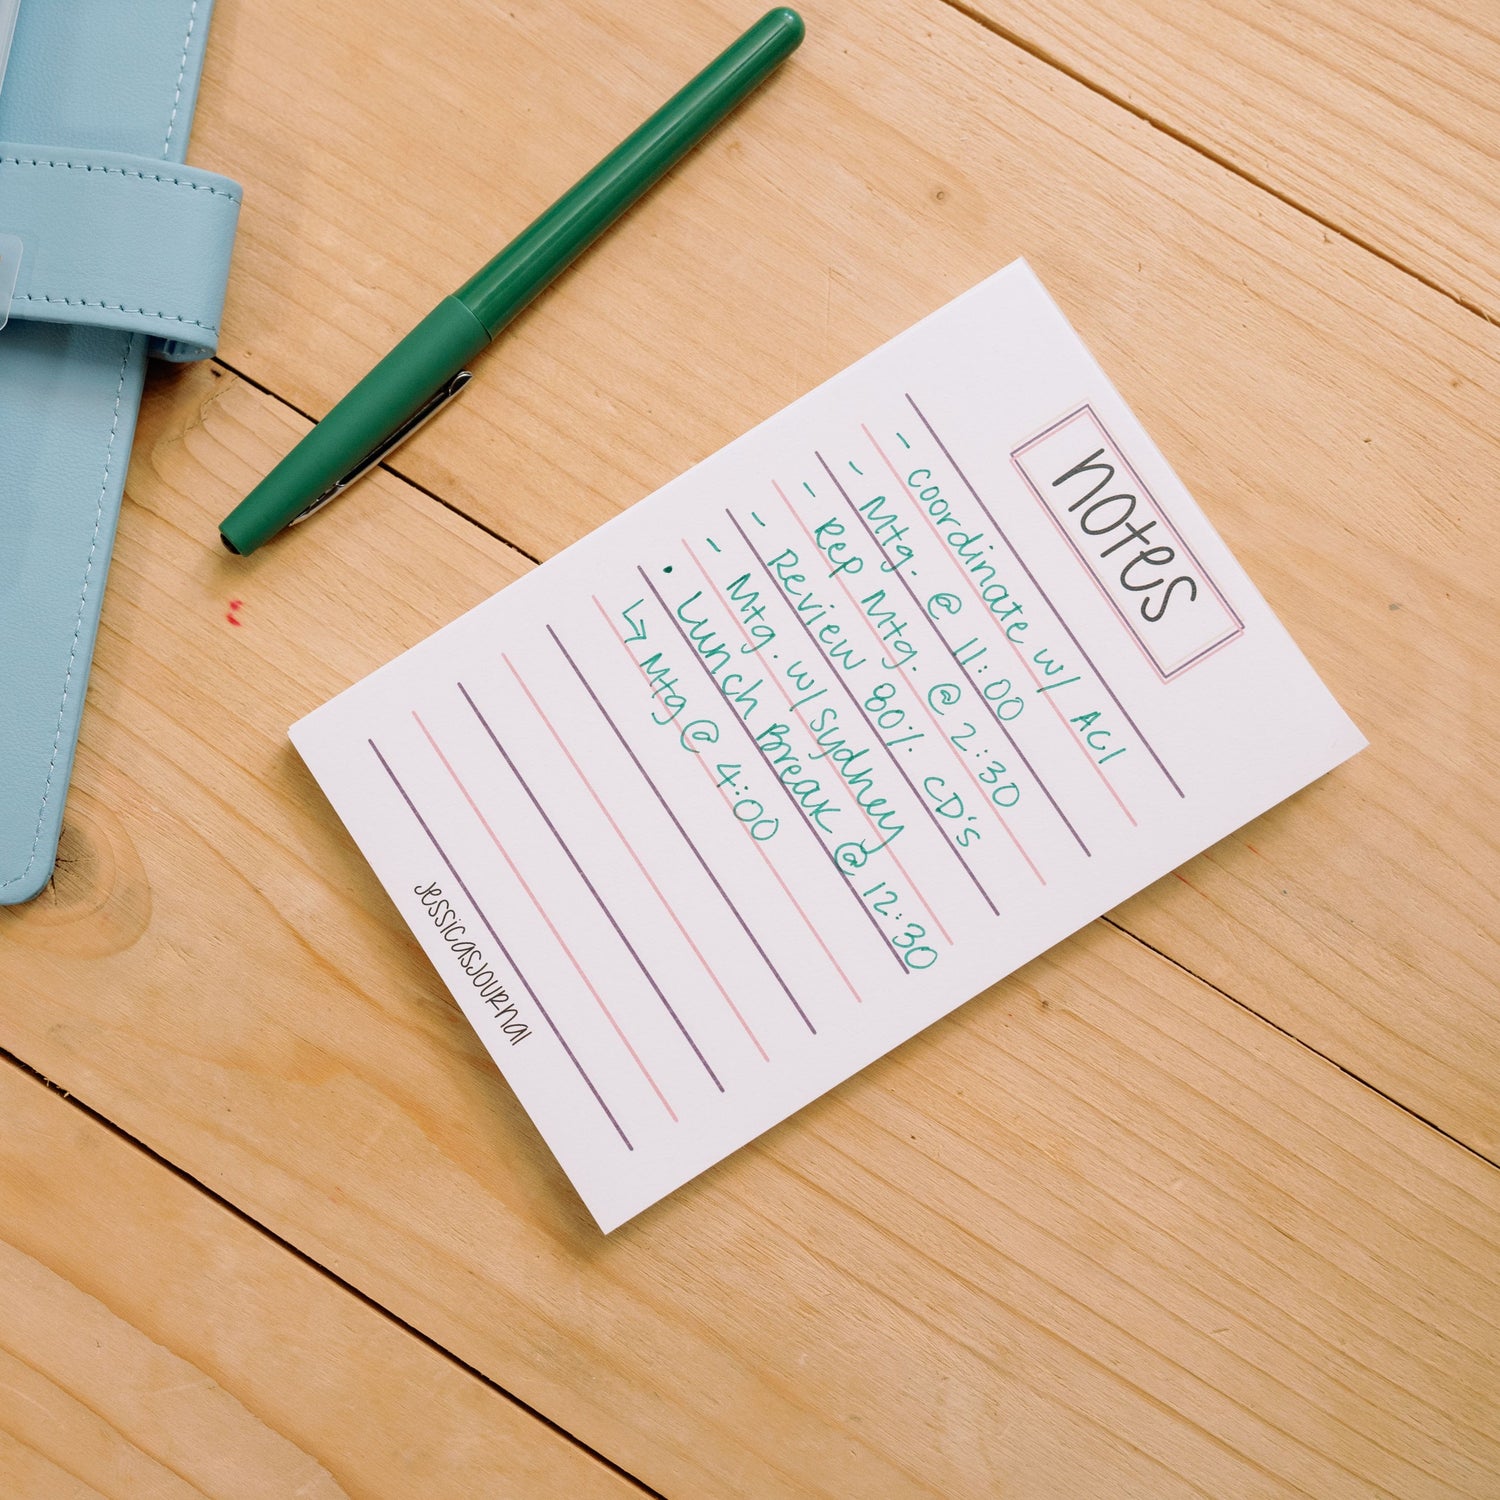 notes
- coordinate w/ ACI
- Mtg. @ 11:00
- Rep Mtg. @ 2:30
- Review 80% CD's
- Mtg. w/ Sydney
• Lunch Break @ 12:30
↳ Mtg @ 4:00
JESSICASJOURNAl